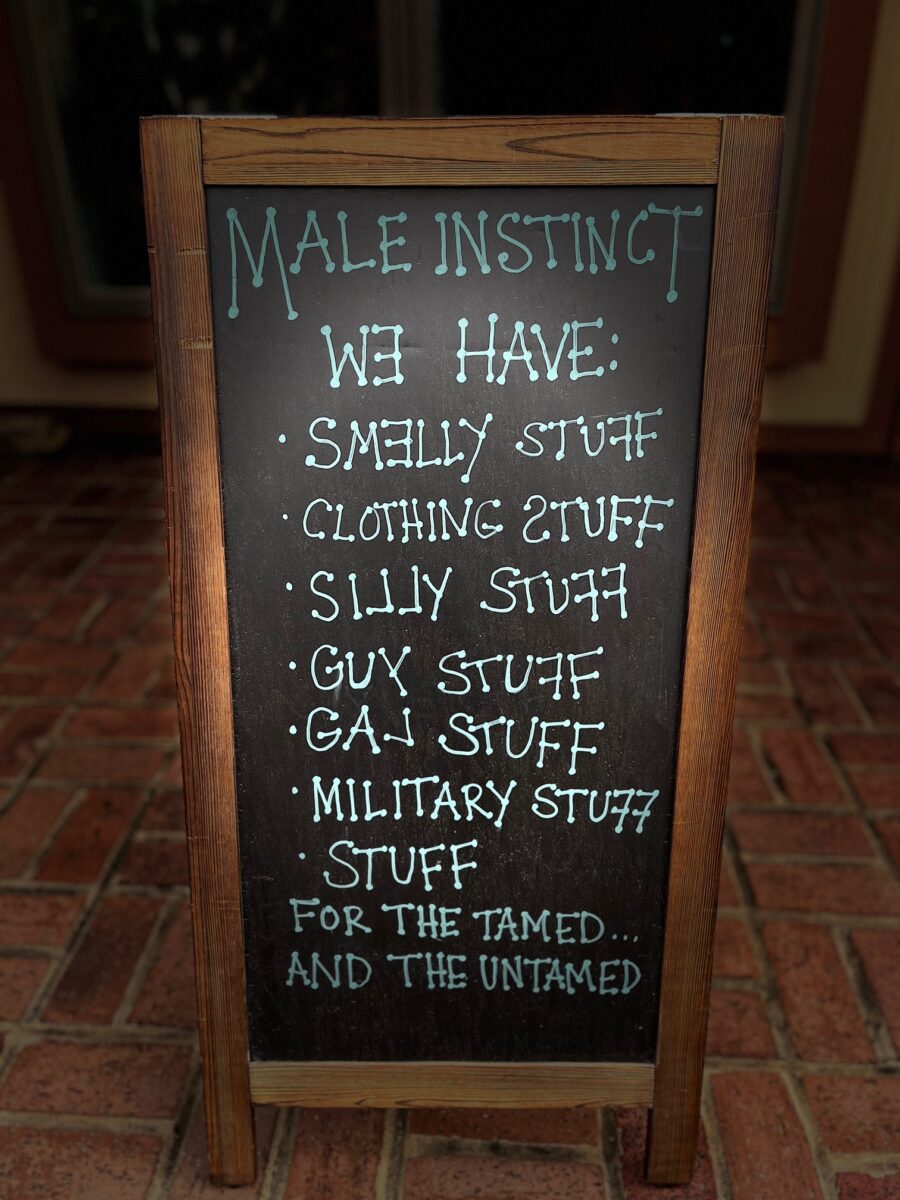 MALE INSTINCT
WE HAVE:
· SMELLY STUFF
· CLOTHING STUFF
· SILLY STUFF
· GUY STUFF
· GAL STUFF
· MILITARY STUFF
· STUFF
FOR THE TAMED...
AND THE UNTAMED